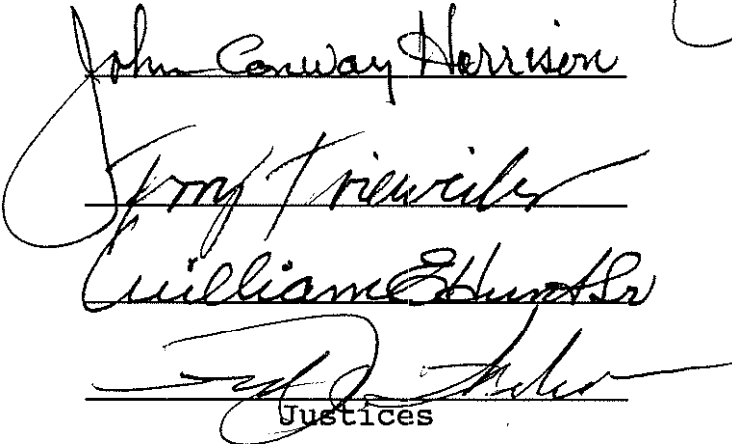 John Conway Harrison
Terry Trieweiler
William E Hunt Sr
Justices